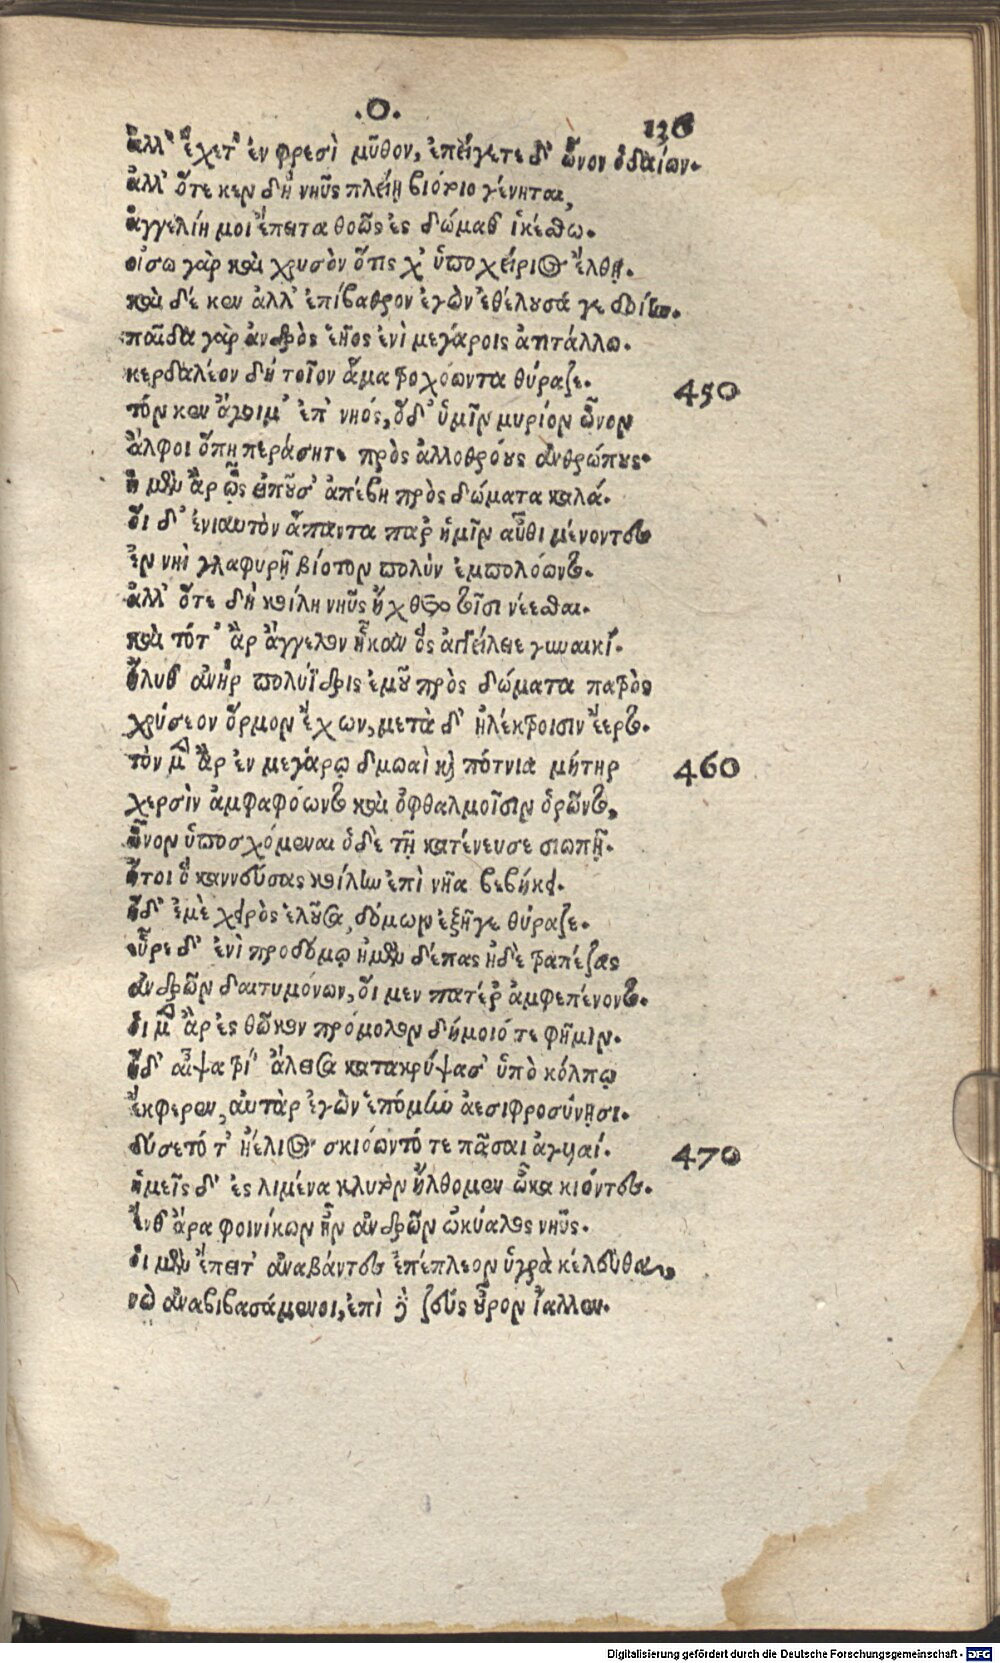 .Ο.
136
ἀλλ' ἔχετ' ἐν φρεσὶ μῦθον, ἐπείγετε δ' ὦνον ὁδαίων.
ἀλλ' ὅτε κεν δὴ νηῦς πλείη βιότοιο γένηται,
ἀγγελίη μοι ἔπειτα θοῶς ἐς δώμαθ' ἱκέσθω.
οἴσω γὰρ καὶ χρυσὸν ὅτις χ' ὑποχείριος ἔλθῃ.
καὶ δέ κεν ἀλλ' ἐπίβαθρον ἐγὼν ἐθέλουσά γε δοίην.
παῖδα γὰρ ἀνδρὸς ἑῆος ἐνὶ μεγάροις ἀτιτάλλω.
κερδαλέον δὴ τοῖον ἅμα τροχόωντα θύραζε. 450
τόν κεν ἄγοιμ' ἐπ' νηός, ὁ δ' ὑμῖν μυρίον ὦνον
ἄλφοι ὅπη περάσητε πρὸς ἀλλοθρόους ἀνθρώπους.
ἡ μὲν ἂρ ὣς εἰποῦσ' ἀπέβη πρὸς δώματα καλά.
οἱ δ' ἐνιαυτὸν ἅπαντα παρ' ἡμῖν αὖθι μένοντες
ἐν νηὶ γλαφυρῇ βίοτον πολὺν ἐμπολόωντο.
ἀλλ' ὅτε δὴ κοίλη νηῦς ἤχθετο τοῖσι νέεσθαι.
καὶ τότ' ἂρ ἄγγελον ἧκαν ὃς ἀγγείλειε γυναικί.
ἤλυθ' ἀνὴρ πολύϊδρις ἐμοῦ πρὸς δώματα πατρὸς
χρύσεον ὅρμον ἔχων, μετὰ δ' ἠλέκτροισιν ἔερτο.
τὸν μὲν ἂρ ἐν μεγάρῳ δμωαὶ καὶ πότνια μήτηρ 460
χερσὶν ἀμφαφόωντο καὶ ὀφθαλμοῖσιν ὁρῶντο,
ὦνον ὑποσχόμεναι ὁ δὲ τῇ κατένευσε σιωπῇ.
ἤτοι ὁ καννεύσας κοίλην ἐπὶ νῆα βεβήκει.
ἡ δ' ἐμὲ χειρὸς ἑλοῦσα, δόμων ἐξῆγε θύραζε.
εὗρε δ' ἐνὶ προδόμῳ ἠμὲν δέπας ἠδὲ τραπέζας
ἀνδρῶν δαιτυμόνων, οἵ μεν πατέρ' ἀμφεπένοντο.
οἱ μὲν ἂρ ἐς θῶκον πρόμολον δήμοιό τε φῆμιν.
ἡ δ' αἶψα τρί' ἄλεισα κατακρύψασ' ὑπὸ κόλπῳ
ἔκφερεν, αὐτὰρ ἐγὼν ἑπόμην ἀεσιφροσύνῃσι.
δύσετό τ' ἠέλιος σκιόωντό τε πᾶσαι ἀγυιαί. 470
ἡμεῖς δ' ἐς λιμένα κλυτὸν ἤλθομεν ὦκα κιόντες.
ἔνθ' ἄρα φοινίκων ἦν ἀνδρῶν ὠκύαλος νηῦς.
οἱ μὲν ἔπειτ' ἀναβάντες ἐπέπλεον ὑγρὰ κέλευθα,
νὼ ἀναβιβασάμενοι, ἐπὶ δὲ ζεὺς οὖρον ἴαλλεν.
Digitalisierung gefördert durch die Deutsche Forschungsgemeinschaft - DFG